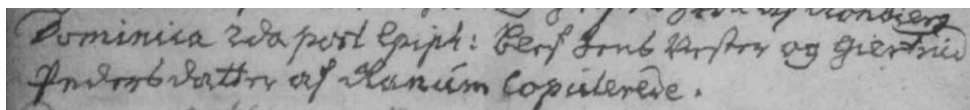 Dominica 2da post Epiph: blef Jens Vester og Giertrud
Peders datter af Ranum Copulerede.